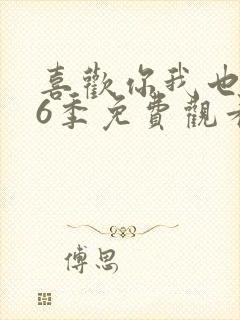 喜歡你我也
6季免費觀看
傅思